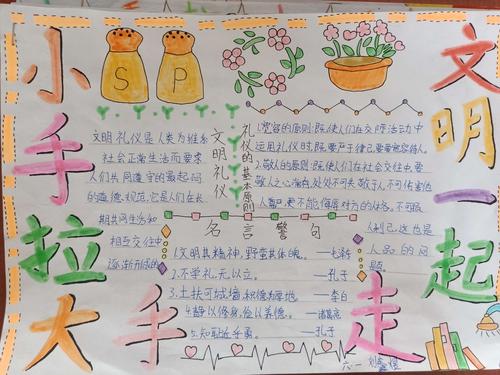 小手拉大手
文明一起走
S P
文明礼仪是人类为维系
社会正常生活而要求
人们共同遵守的最起码
的道德规范,它是人们在长
期共同生活和
相互交往中
逐渐形成的
文明礼仪
礼仪的基本原则
1.宽容的原则:既使人们在交际活动中
运用礼仪时,既要严于律己,更要宽容待人。
2.敬人的原则:既使人们在社会交往中,要
敬人之心常存,处处不可失敬于人,不可伤害他
人尊严,更不能侮辱对方的
人利己,这也是
人品的问
题。
名言警句
1.文明其精神,野蛮其体魄。——毛泽东
2.不学礼,无以立。——孔子
3.土扶可城墙,积德为厚地。——李白
4.静以修身,俭以养德。——诸葛亮
5.知耻近乎勇。——孔子
六一 刘